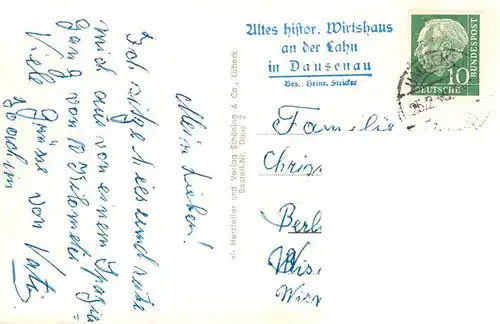 Meine Lieben!
Ich sitze hier und ruhe
mich aus von einem Spazier
gang von 10 Kilometer
Viele Grüsse von Vati
Joachim
st. Hersteller und Verlag Schöning & Co., Lübeck
Bestell-Nr. Daus 2
Altes histor. Wirtshaus
an der Lahn
in Dausenau
Bes.: Heinr. Stricker
10
DEUTSCHE
BUNDESPOST
Familie
Chri
Berl
Wis